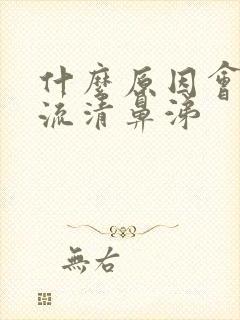 什麼原因會
流清鼻涕
無右